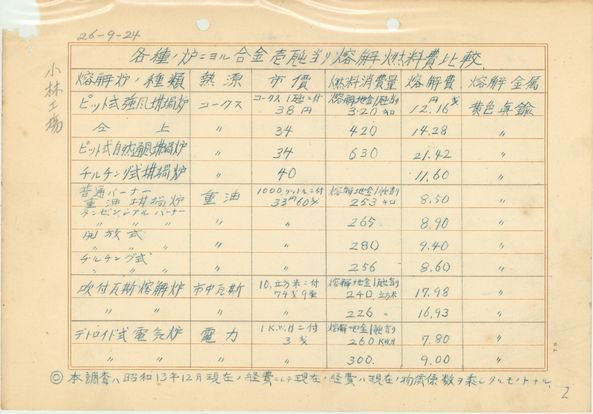 26-9-24
小林工場
各種ノ炉ニヨル合金壱瓲当リ熔解燃料費比較
熔解炉ノ種類 熱源 市價 燃料消費量 熔解費 熔解金属
ピット式強風坩堝炉 コークス コークス1瓲ニ付 38円 熔解地金1瓲割 320キロ 12.円16銭 黄色真鍮
仝上 〃 34 420 14.28 〃
ピット式自然通風坩堝炉 〃 34 630 21.42 〃
チルチング式坩堝炉 〃 40 11.60 〃
普通バーナー
重油坩堝炉 重油 1000リットルニ付 33円60銭 熔解地金1瓲割 253キロ 8.50 〃
タンゼンシアルバーナー
〃 〃 〃 〃 〃 265 8.90 〃
開放式
〃 〃 〃 〃 280 9.40 〃
チルチング式
〃 〃 〃 〃 256 8.60 〃
吹付瓦斯熔解炉 市中瓦斯 10.立方米ニ付 74銭9厘 熔解地金1瓲割 240立方米 17.98 〃
〃 〃 〃 〃 226 16.93 〃
デトロイド式電気炉 電力 1K.W.Hニ付 3銭 熔解地金1瓲割 260KWH 7.80 〃
〃 〃 〃 〃 300. 9.00 〃
◎本調査ハ昭和13年12月現在ノ経費ニシテ現在ノ経費ハ現在ノ物価係数ヲ乗シタルモノトナル
2